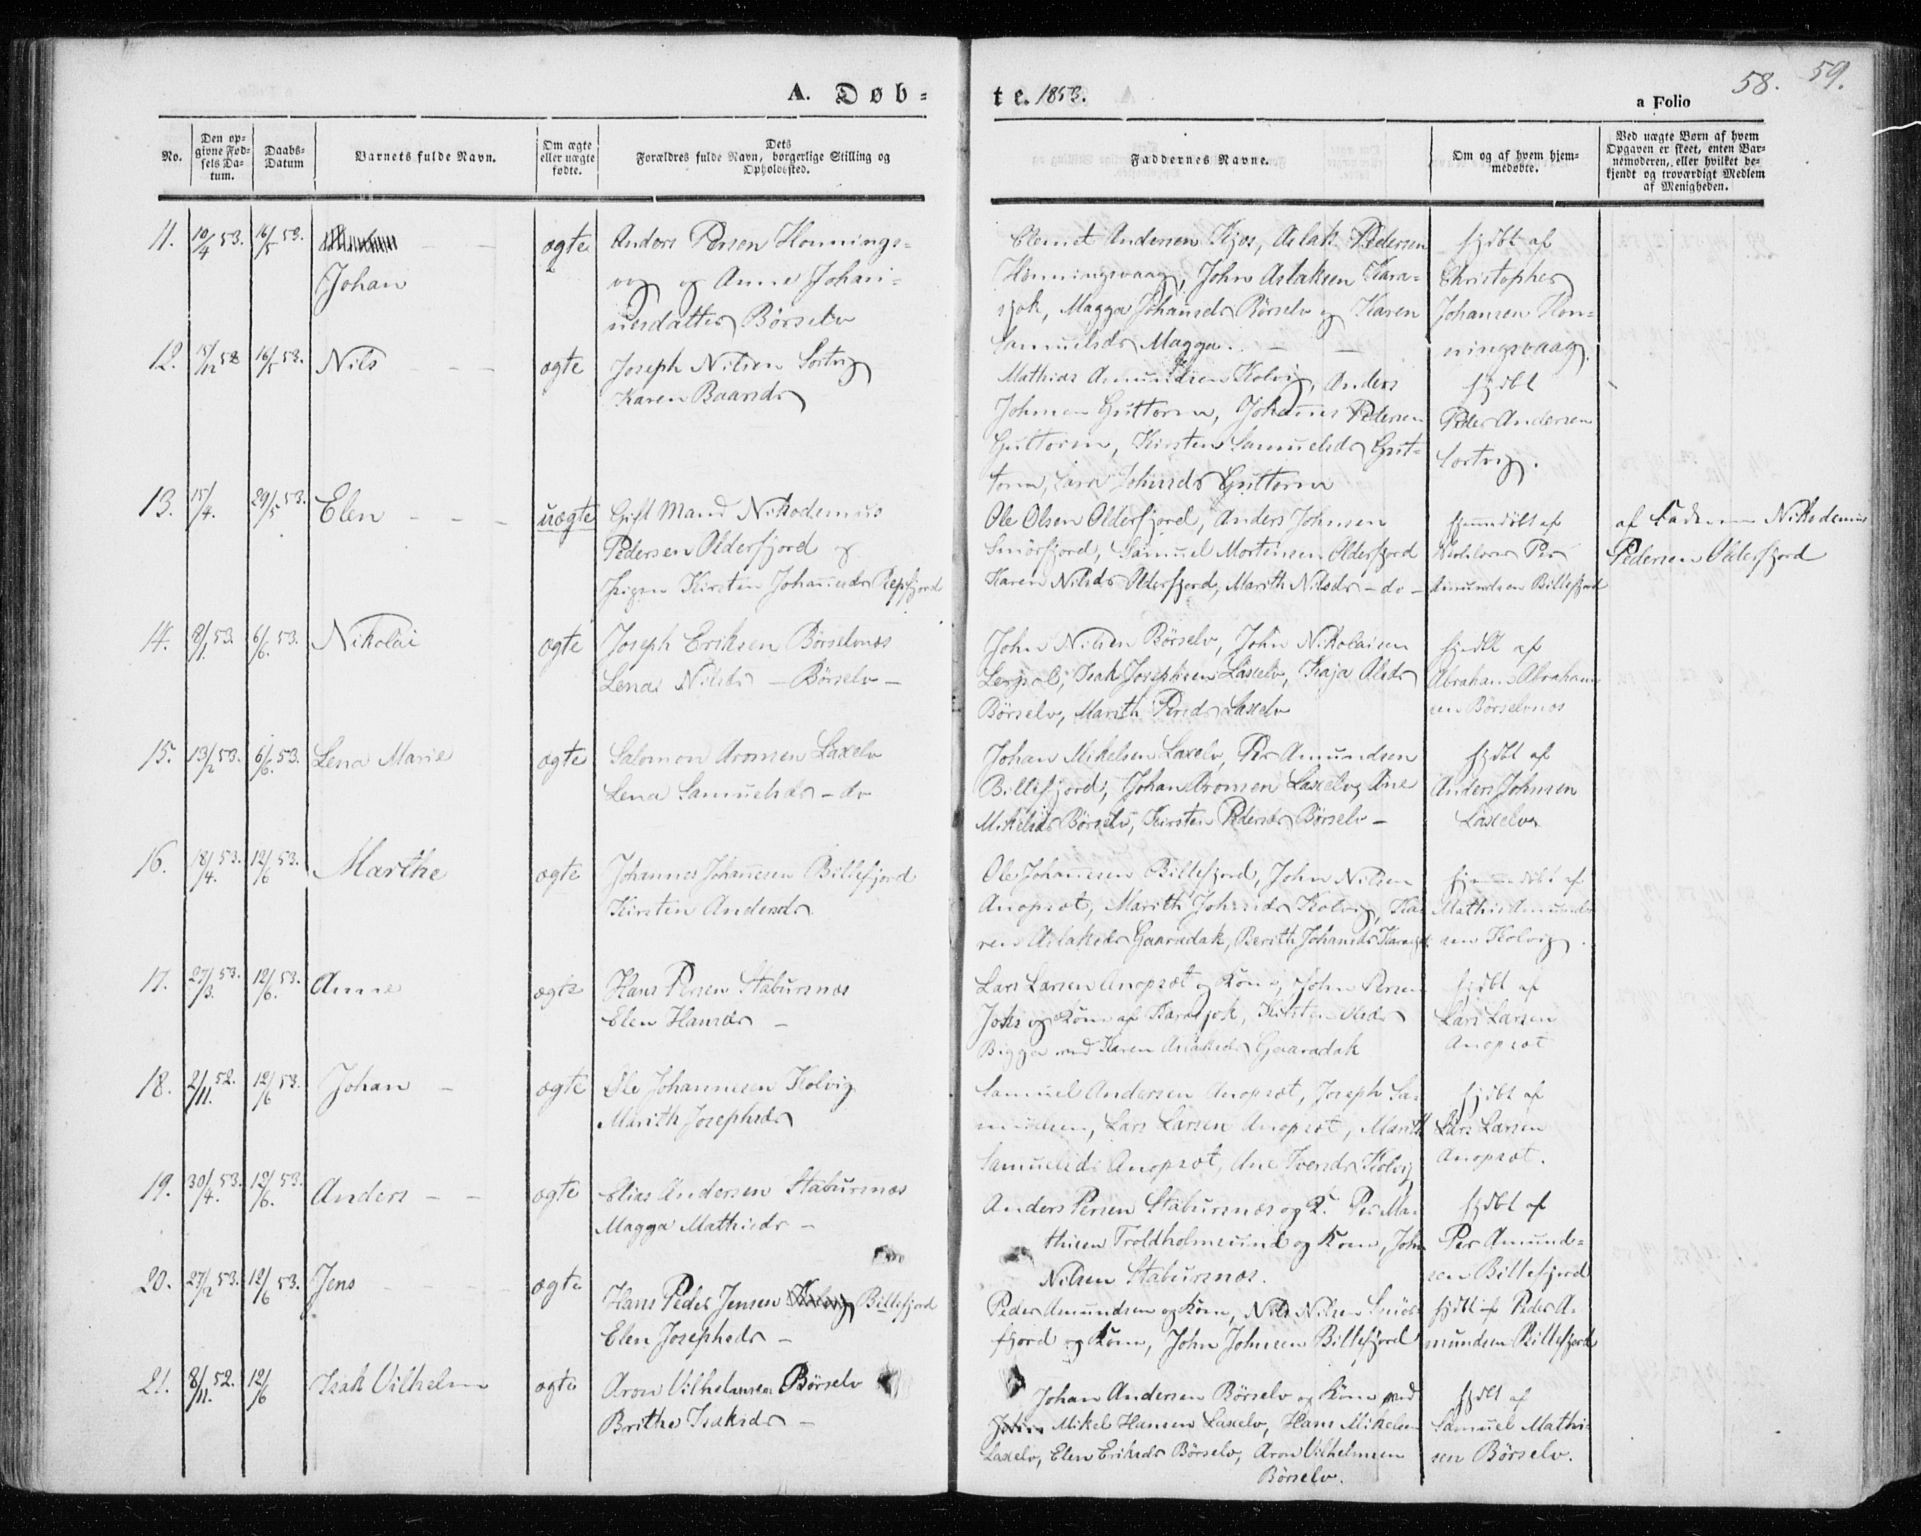 A. Døb-
te. 1853.
a Folio
58. 59.
No.
Den op-
givne Fød-
sels Da-
tum.
Daabs-
Datum
Barnets fulde Navn.
Om ægte
eller uægte
fødte.
Dets
Forældres fulde Navn, borgerlige Stilling og
Opholdssted.
Faddernes Navne.
Om og af hvem hjem-
medøbte.
Ved uægte Børn af hvem
Opgaven er skeet, enten Bar-
nemoderen, eller hvilket be-
kjendt og troværdigt Medlem
af Menigheden.
11. 10/4 53. 16/5 53.
Johan
ægte
Anders Persen Honnings-
vog og Anne Johan-
nesdatter Börselv
Clemet Andersen Kjos, Aslak Pedersen
Honningsvaag, John Aslaksen Kara-
sjok, Magga Johansdr Börselv og Karen
Samuelsdr Magga.
hjdbt af
Christopher
Johansen Hon-
ningsvaag.
12. 16/5 53.
Nils
ægte
Joseph Nilsen Sortvig
Karen Baardsdr
Mathias Amundsen Kolvig, Anders
Johnsen Guttorm, Johannes Pedersen
Guttorm, Kirsten Samuelsdr Gut-
torm, Guttorm
hjdbt
Peder Andersen
Sortvig.
13. 15/4. 29/5 53.
Elen
uægte
Gift Mand Nikodemus
Pedersen Olderfjord og
Pigen Kirsten Johannesdr Repfjord
Ole Olsen Olderfjord, Anders Johnsen
Smörfjord, Samuel Mortensen Olderfjord
Karen Nilsdr Olderfjord, Marith Nilsdr - do -
hjemmedöbt af
Per
Amundsen Billefjord
af Faderen Nikodemus
Pedersen Olderfjord
14. 8/1. 53. 6/6. 53.
Nikolai
ægte
Joseph Eriksen Börselvnæs
Lena Nilsdr - Börselv -
John Nilsen Börselv, John Nikolaisen
Isak Josephsen Laxelv, Kaja Olsdr
Börselv, Marith Persdr Laxelv
hjdbt af
Abraham Abraham-
sen Börselvnæs
15. 13/2 53. 6/6. 53.
Lena Marie
ægte
Salomon Aronsen Laxelv
Lena Samuelsdr - do
Johan Mikelsen Laxelv, Per Amundsen
Billefjord, Johan Aronsen Laxelv, Ane
Mikelsdr Börselv, Kirsten Pedersdr Börselv -
hjdbt af
Anders Johnsen
Laxelv
16. 18/4. 53. 12/6 53.
Marthe
ægte
Johannes Johannesen Billefjord
Kirsten Andersdr
Ole Johannesen Billefjord, John Nilsen
Anopsæt, Marith Johnsdr Kolvig, Ka-
ren Aslaksdr Gaaradak, Berith Johansdr
hjemmedöbt af
Mathis Amund-
sen Kolvig.
17. 27/3. 53. 12/6. 53.
Anne
ægte
Hans Persen Stabursnæs
Elen Hansdr -
Lars Larsen Anopsæt og Kone, John Persen
Joks og Kone af Karasjok, Kirsten Olsdr
Bigga med Karen Aslaksdr Gaaradak
hjdbt af
Lars Larsen
Anopsæt
18. 2/11. 52. 12/6 53.
Johan -
ægte
Ole Johannesen Kolvig
Marith Josephsdr
Samuel Andersen Anopsæt, Joseph Sa-
muelsen, Lars Larsen Anopsæt, Marith
Samuelsdr Anopsæt, Ane Iversdr Kolvig
hjdbt af
Lars Larsen
Anopsæt.
19. 30/4. 53. 12/6. 53.
Anders - -
ægte
Elias Andersen Stabursnæs
Magga Mathisdr -
Anders Persen Stabursnæs og K. Per Ma-
thisen Troldholmsund og Kone, John
Nilsen Stabursnæs.
hjdbt af
Per Amund-
sen Billefjord
20. 27/2 53. 12/6 53.
Jens
ægte
Hans Peder Jensen Billefjord
Elen Josephsdr -
Peder Amundsen og Kone, Nils Nilsen Smör-
fjord og Kone, John Johnsen Billefjord
hjdbt af Peder A-
mundsen Billefjord
21. 8/11. 52. 12/6
Isak Vilhelm
ægte
Aron Vilhelmsen Börselv
Brithe Isaksdr -
Johan Andersen Börselv og Kone med
Mikel Hansen Laxelv, Hans Mikelsen
Laxelv, Elen Eriksdr Börselv, Aron Vilhelmsen
Börselv.
hjdbt af
Samuel Mathi-
sen Börselv.